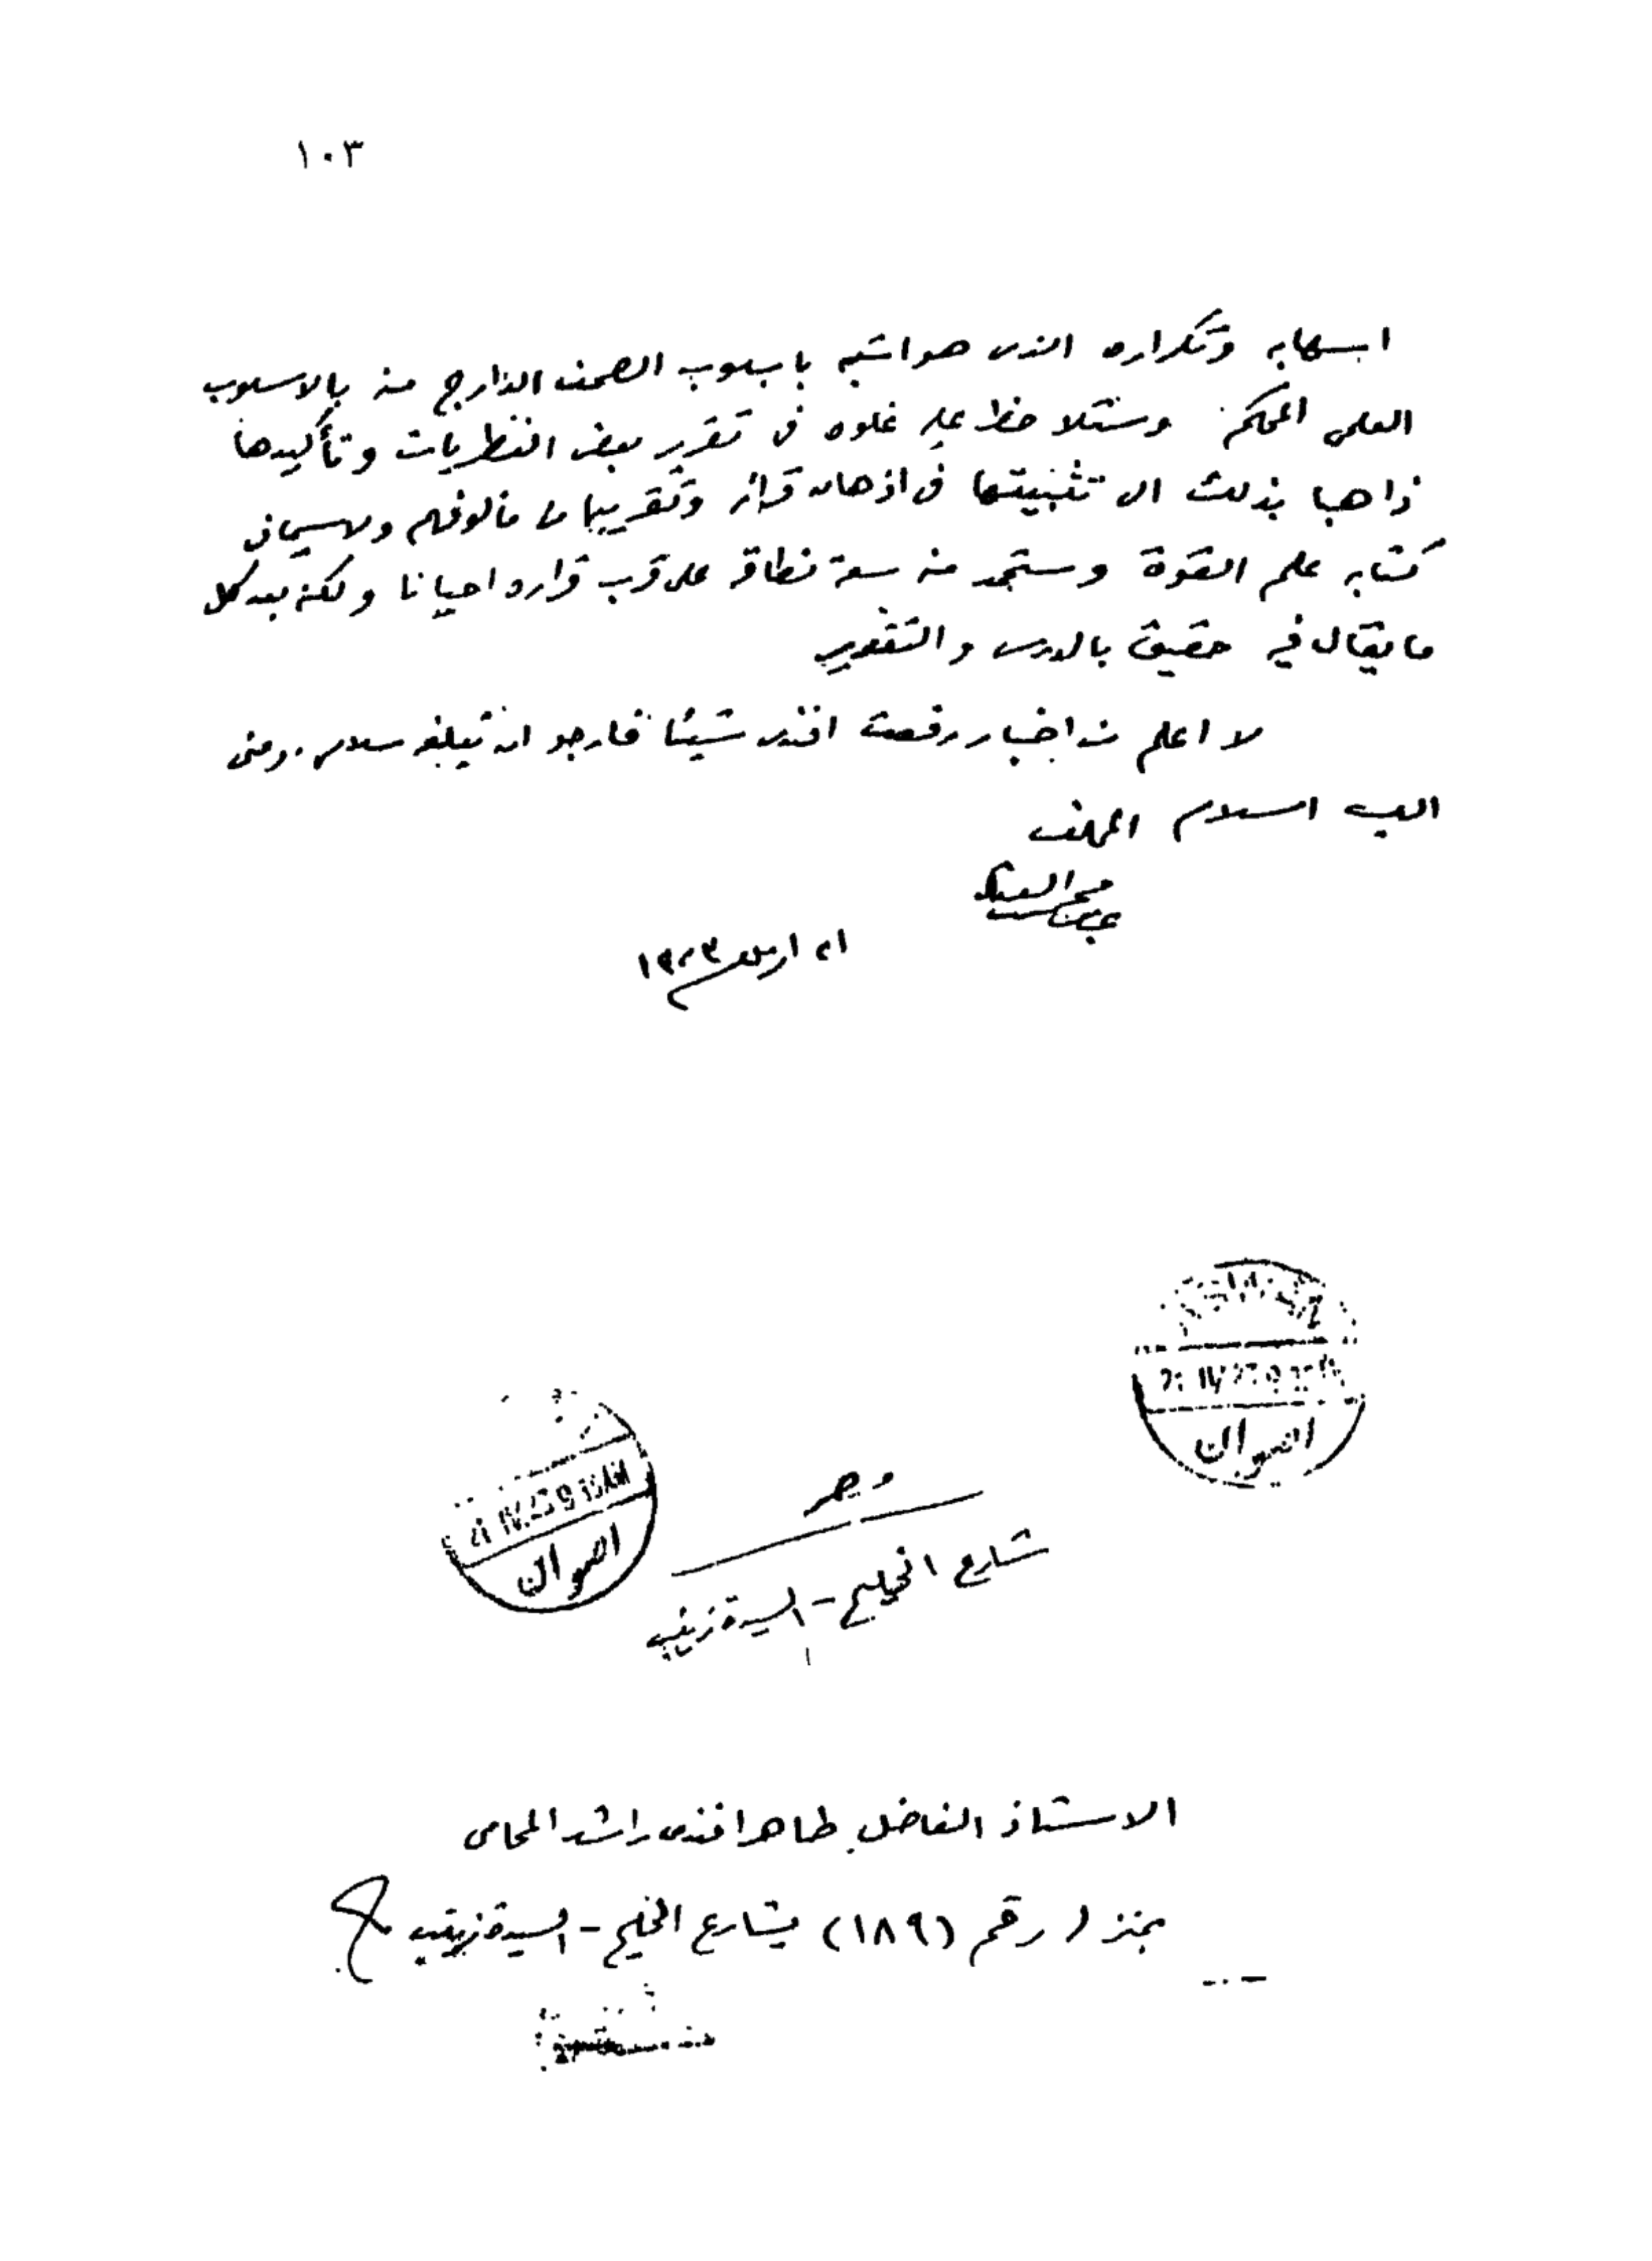 ١٠٣
اسهابه وتكراره الذى هو اشبه باسلوب الصحف الدارج منه بالاسلوب
العلمى المحكم وستلاحظ عليه غلوه فى تقرير بعض النظريات وتأكيدها
ذاهبا بذلك الى تثبيتها فى اذهان قرائه وتقريبها من مألوفهم ولاسيما فى
كتابه علم القوة وستجد من سعة نطاقه على قرب قراره احيانا ولكنه بعد كل
ما يقال فيه حقيق بالدرس والتقدير
لا اعلم من اخبار رفعت افندى شيئا فارجو ان تبلغه سلامى . ومنى
اليك السلام
عباس محمود العقاد
٢١ ابريل ١٩٢٣
اصوان
اصوان
مصر
شارع الخليج - السيدة زينب
الاستاذ الفاضل طاهر افندى راشد المحامى
بمنزل رقم (١٨٩) بشارع الخليج - السيدة زينب